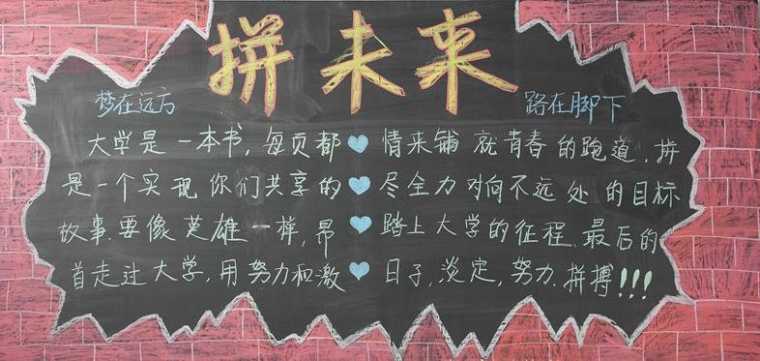 拼未来
梦在远方
路在脚下
大学是一本书,每页都
是一个实现你们共享的
故事.要像英雄一样,昂
首走过大学,用努力和激
情来铺就青春的跑道.拼
尽全力对向不远处的目标
踏上大学的征程.最后的
日子,淡定,努力.拼搏!!!